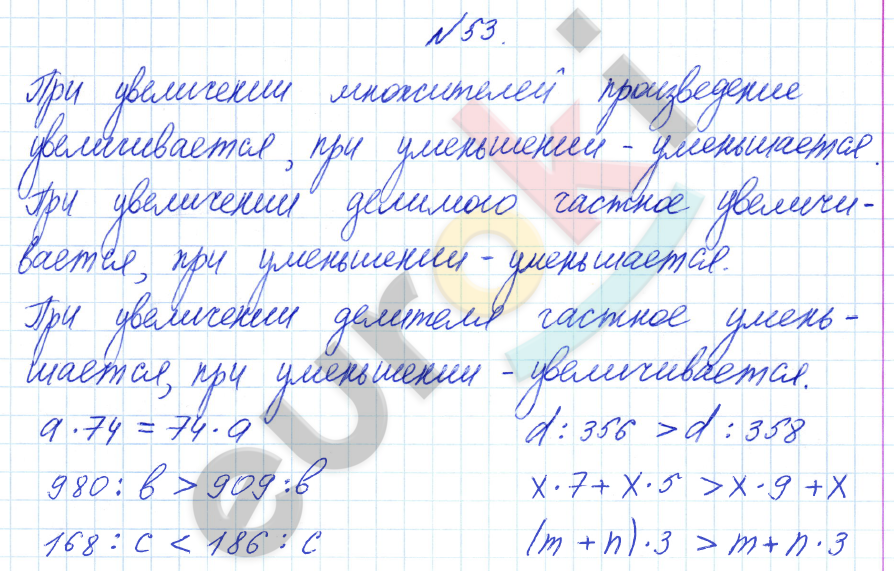 №53.
При увеличении множителей произведение
увеличивается, при уменьшении - уменьшается.
При увеличении делимого частное увеличи-
вается, при уменьшении - уменьшается.
При увеличении делителя частное умень-
шается, при уменьшении - увеличивается.
a·74 = 74·a
d : 356 > d : 358
980 : в > 909 : в
x·7 + x·5 > x·9 + x
168 : c < 186 : c
(m + n)·3 > m + n·3
euroki